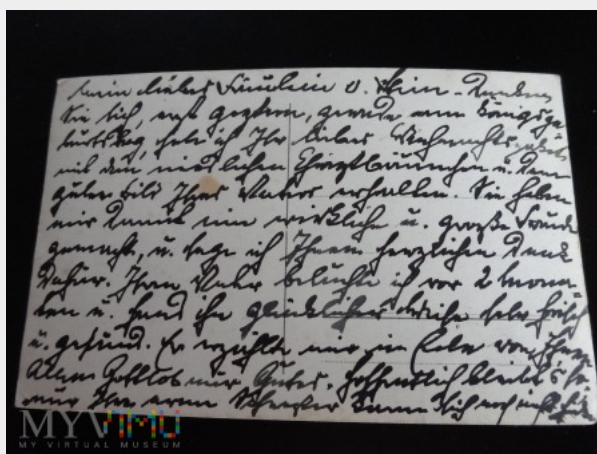 mein liebes Fräulein v. Stein - Denken
Sie sich, erst gestern, gerade am Königsge-
burtstag, habe ich Ihr liebes Weihnachts
mit dem niedlichen Christbäumchen u. dem
guten Bild Ihres Vaters erhalten. Sie haben
mir damit eine wirkliche u. große Freude
gemacht, u. sage ich Ihnen herzlichen Dank
dafür. Ihren Vater besuchte ich vor 2 Mona-
ten u. fand ihn glücklicher sehr frisch
u. gesund. Er erzählte mir von Ihnen
Allen Gottlob nur Gutes. Hoffentlich bleibt's so
nur Ihre arme sich noch
MYVIMU
MY VIRTUAL MUSEUM